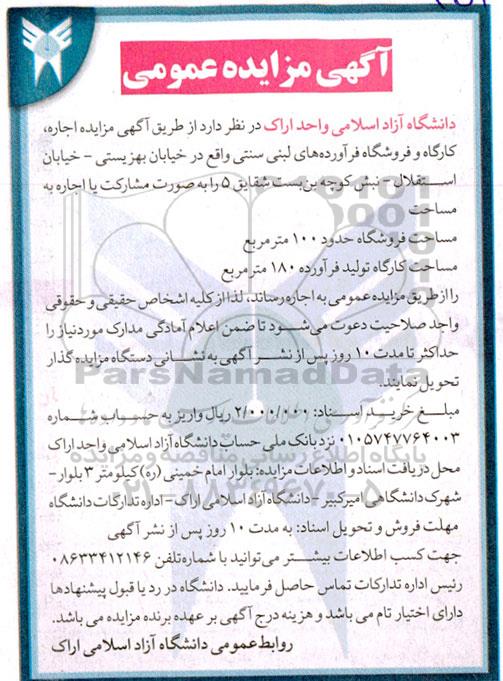 آگهی مزایده عمومی
دانشگاه آزاد اسلامی واحد اراک در نظر دارد از طریق آگهی مزایده اجاره،
کارگاه و فروشگاه فرآورده‌های لبنی سنتی واقع در خیابان بهزیستی - خیابان
استقلال - نبش کوچه بن‌بست شقایق ۵ را به صورت مشارکت یا اجاره به
مساحت
مساحت فروشگاه حدود ۱۰۰ متر مربع
مساحت کارگاه تولید فرآورده ۱۸۰ متر مربع
را از طریق مزایده عمومی به اجاره رساند، لذا از کلیه اشخاص حقیقی و حقوقی
واجد صلاحیت دعوت می‌شود تا ضمن اعلام آمادگی مدارک مورد نیاز را
حداکثر تا مدت ۱۰ روز پس از نشر آگهی به نشانی دستگاه مزایده گذار
تحویل نمایند.
ParsNamadData
مبلغ خرید اسناد: ۲/۰۰۰/۰۰۰ ریال واریز به حساب شماره
۰۱۰۵۷۴۷۷۶۴۰۰۳ نزد بانک ملی حساب دانشگاه آزاد اسلامی واحد اراک
پایگاه اطلاع رسانی مناقصه و مزایده
محل دریافت اسناد و اطلاعات مزایده: بلوار امام خمینی (ره) کیلومتر ۳ بلوار -
شهرک دانشگاهی امیرکبیر - دانشگاه آزاد اسلامی اراک - اداره تدارکات دانشگاه
مهلت فروش و تحویل اسناد: به مدت ۱۰ روز پس از نشر آگهی
جهت کسب اطلاعات بیشتر می‌توانید با شماره تلفن ۰۸۶۳۳۴۱۲۱۴۶
رئیس اداره تدارکات تماس حاصل فرمایید. دانشگاه در رد یا قبول پیشنهادها
دارای اختیار تام می باشد و هزینه درج آگهی بر عهده برنده مزایده می باشد.
روابط عمومی دانشگاه آزاد اسلامی اراک